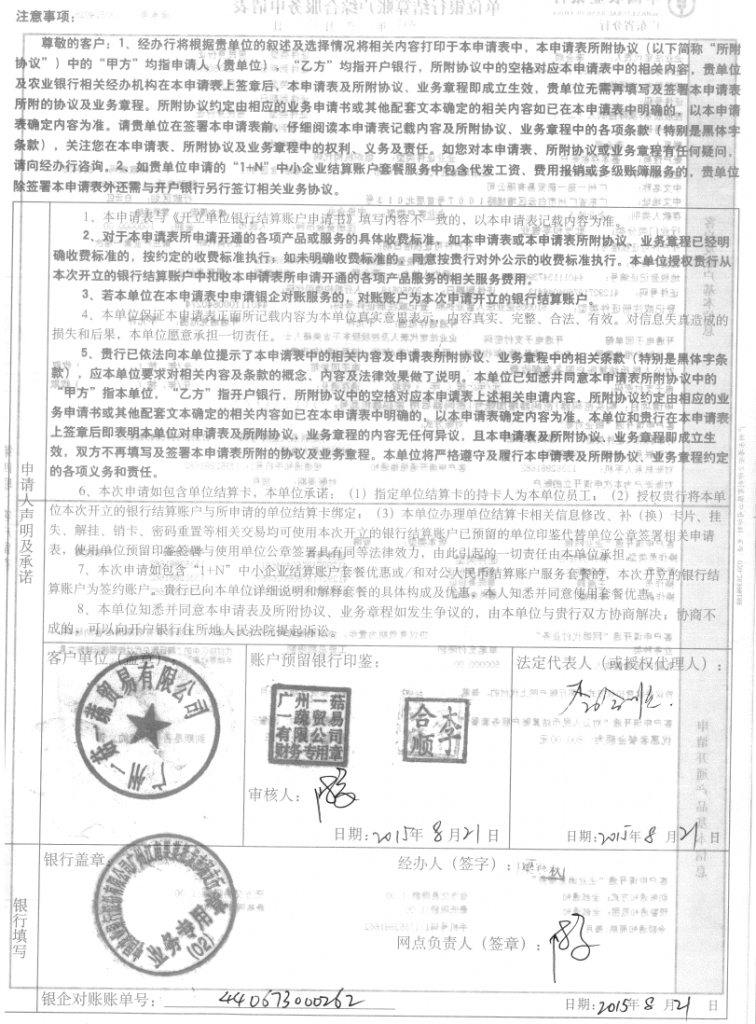 注意事项：
尊敬的客户：1、经办行将根据贵单位的叙述及选择情况将相关内容打印于本申请表中，本申请表所附协议（以下简称“所附
协议”）中的“甲方”均指申请人（贵单位），“乙方”均指开户银行，所附协议中的空格对应本申请表中的相关内容，贵单位
及农业银行相关经办机构在本申请表上签章后，本申请表及所附协议、业务章程即成立生效，贵单位无需再填写及签署本申请表
所附的协议及业务章程。所附协议约定由相应的业务申请书或其他配套文本确定的相关内容如已在本申请表中明确的，以本申请
表确定内容为准。请贵单位在签署本申请表前，仔细阅读本申请表记载内容及所附协议、业务章程中的各项条款（特别是黑体字
条款），关注您在本申请表、所附协议及业务章程中的权利、义务及责任。如您对本申请表、所附协议或业务章程有任何疑问，
请向经办行咨询。2、如贵单位申请的“1+N”中小企业结算账户套餐服务中包含代发工资、费用报销或多级账簿服务的，贵单位
除签署本申请表外还需与开户银行另行签订相关业务协议。
申请人声明及承诺
1、本申请表与《开立单位银行结算账户申请书》填写内容不一致的，以本申请表记载内容为准。
2、对于本申请表所申请开通的各项产品或服务的具体收费标准，如本申请表或本申请表所附协议、业务章程已经明
确收费标准的，按约定的收费标准执行；如未明确收费标准的，同意按贵行对外公示的收费标准执行。本单位授权贵行从
本次开立的银行结算账户中扣收本申请表所申请开通的各项产品服务的相关服务费用。
3、若本单位在本申请表中申请银企对账服务的，对账账户为本次申请开立的银行结算账户。
4、本单位保证本申请表正面所记载内容为本单位真实意思表示，内容真实、完整、合法、有效。对信息失真造成的
损失和后果，本单位愿意承担一切责任。
5、贵行已依法向本单位提示了本申请表中的相关内容及申请表所附协议、业务章程中的相关条款（特别是黑体字条
款），应本单位要求对相关内容及条款的概念、内容及法律效果做了说明，本单位已知悉并同意本申请表所附协议中的
“甲方”指本单位，“乙方”指开户银行，所附协议中的空格对应本申请表上述相关申请内容，所附协议约定由相应的业
务申请书或其他配套文本确定的相关内容如已在本申请表中明确的，以本申请表确定内容为准，本单位和贵行在本申请表
上签章后即表明本单位对申请表及所附协议、业务章程的内容无任何异议，且本申请表及所附协议、业务章程即成立生
效，双方不再填写及签署本申请表所附的协议及业务章程。本单位将严格遵守及履行本申请表及所附协议、业务章程约定
的各项义务和责任。
6、本次申请如包含单位结算卡，本单位承诺：（1）指定单位结算卡的持卡人为本单位员工；（2）授权贵行将本单
位本次开立的银行结算账户与所申请的单位结算卡绑定；（3）本单位办理单位结算卡相关信息修改、补（换）卡片、挂
失、解挂、销卡、密码重置等相关交易均可使用本次开立的银行结算账户已预留的单位印鉴代替单位公章签署相关申请
表，使用单位预留印鉴签署与使用单位公章签署具有同等法律效力，由此引起的一切责任由本单位承担。
7、本次申请如包含“1+N”中小企业结算账户套餐优惠或/和对公人民币结算账户服务套餐的，本次开立的银行结
算账户为签约账户。贵行已向本单位详细说明和解释套餐的具体构成及优惠，本人知悉并同意使用套餐优惠。
8、本单位知悉并同意本申请表及所附协议、业务章程如发生争议的，由本单位与贵行双方协商解决；协商不
成的，可以向开户银行住所地人民法院提起诉讼。
客户单位（盖章）：
广州一菇一蔬贸易有限公司
账户预留银行印鉴：
广州一菇
一蔬贸易
有限公司
财务专用章
李合顺
审核人：
日期：2015年 8 月 21 日
法定代表人（或授权代理人）：
日期：2015年 8 月 21 日
银行填写
银行盖章：
业务专用章
(02)
经办人（签字）：
网点负责人（签章）：
银企对账账单号：440673000262
日期：2015年 8 月 21 日